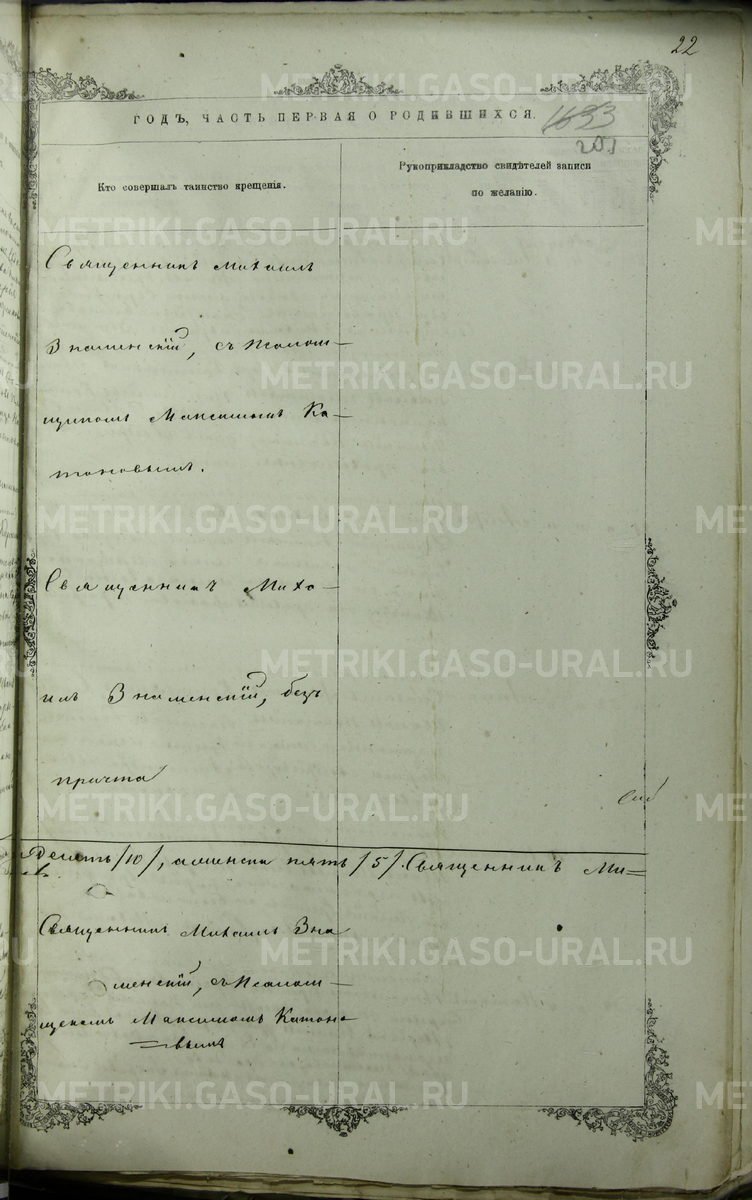 22
ГОДЪ, ЧАСТЬ ПЕРВАЯ О РОДИВШИХСЯ.
1633
201
Кто совершалъ таинство крещенія.
Рукоприкладство свидѣтелей записи
по желанію.
Священникъ Михаилъ
Знаменскій, съ Псалом-
щикомъ Максимомъ Ка-
тоновымъ.
Священникъ Миха-
илъ Знаменскій, безъ
причта
Десять /10/, а женска пять /5/. Священникъ Ми=
Священникъ Михаилъ Зна
менскій, съ Псалом-
щикомъ Максимомъ Катоно
=вымъ
METRIKI.GASO-URAL.RU